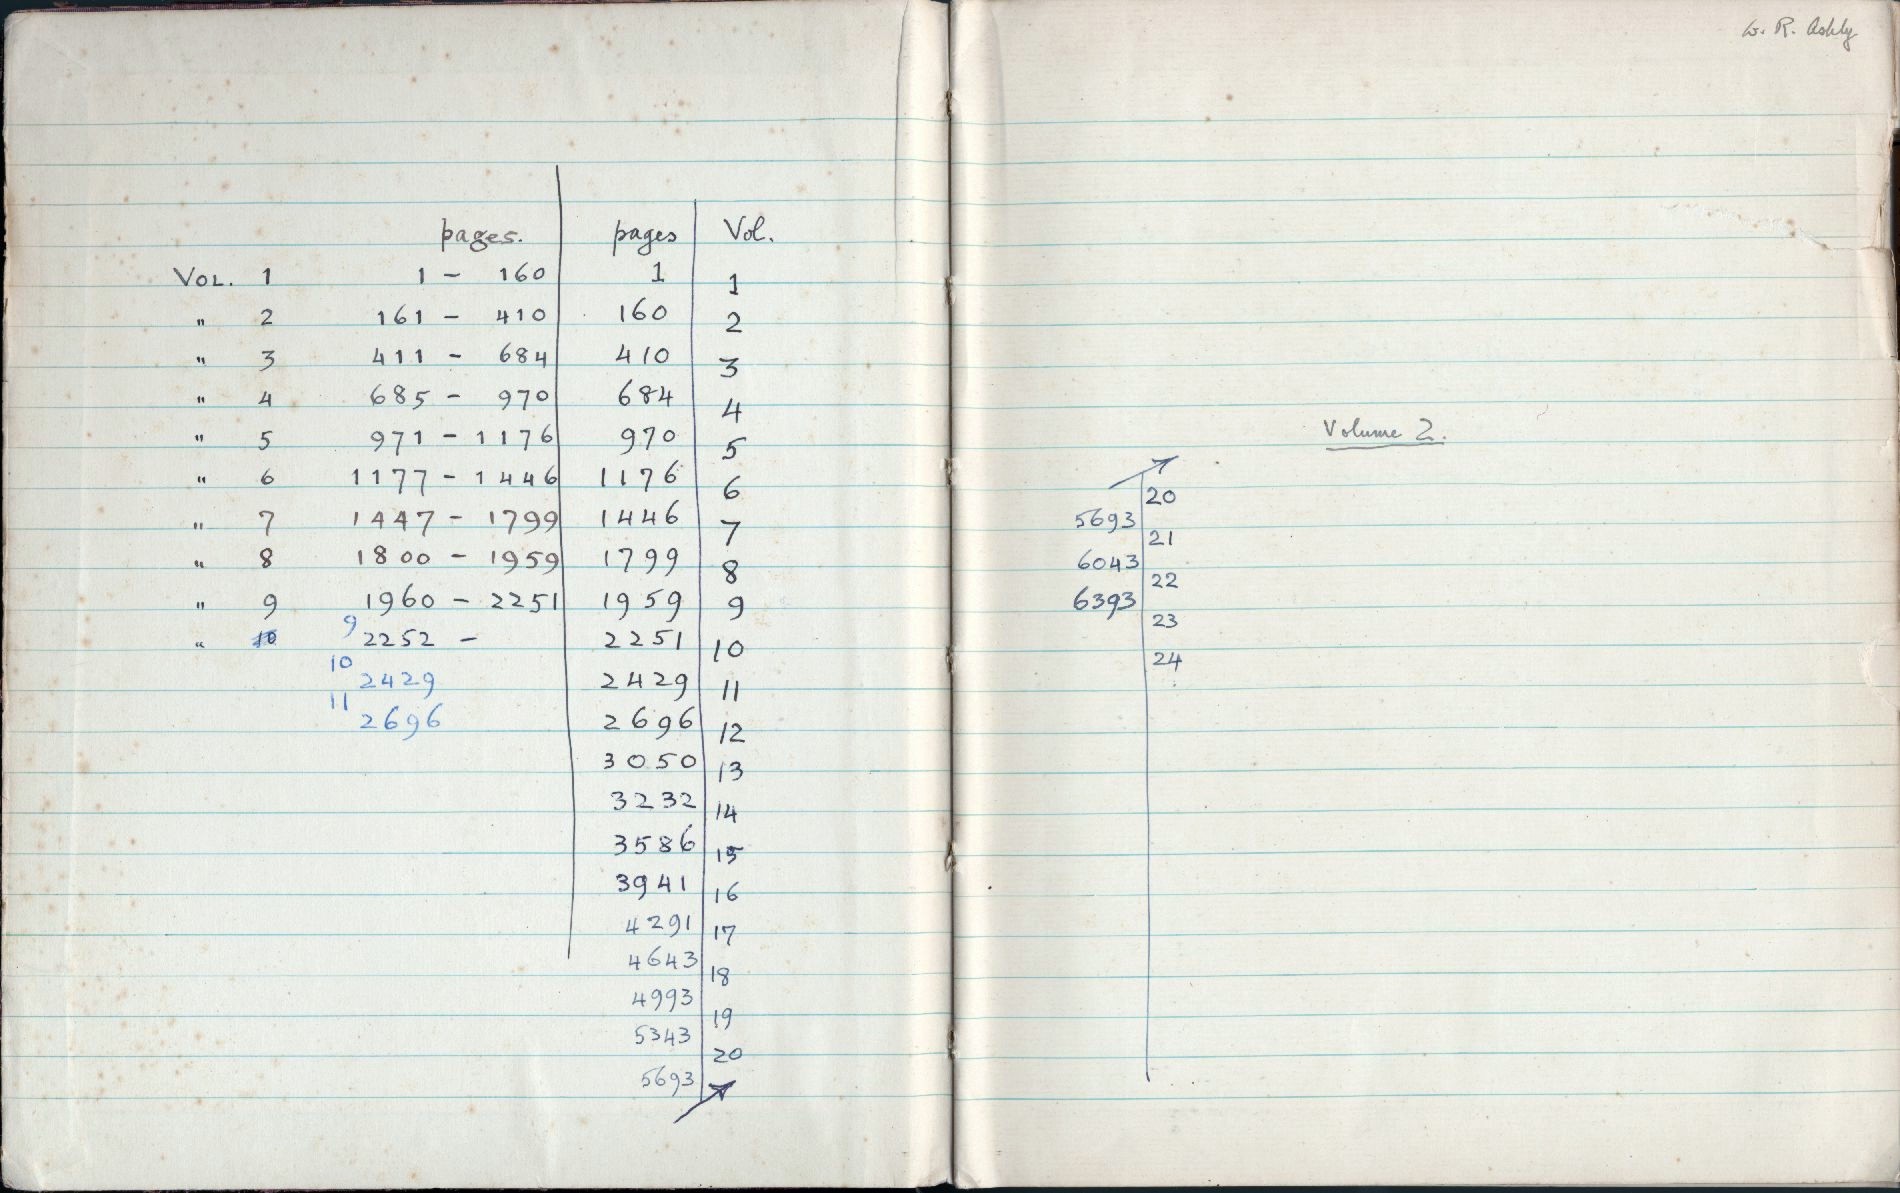 pages. pages Vol.
VOL. 1 1 - 160 1 1
" 2 161 - 410 160 2
" 3 411 - 684 410 3
" 4 685 - 970 684 4
" 5 971 - 1176 970 5
" 6 1177 - 1446 1176 6
" 7 1447 - 1799 1446 7
" 8 1800 - 1959 1799 8
" 9 1960 - 2251 1959 9
" 10 9 2252 - 2251 10
10 2429 2429 11
11 2696 2696 12
3050 13
3232 14
3586 15
3941 16
4291 17
4643 18
4993 19
5343 20
5693
W. R. Ashby
Volume 2.
20
5693
21
6043
22
6393
23
24